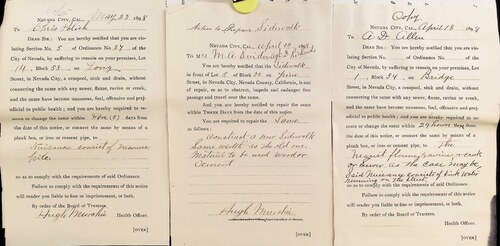 NEVADA CITY, CAL., May 23 1898
To Chris
You are hereby notified that you are violating Section No. 5 of Ordinance No. 37 of the
City of Nevada, by suffering to remain on your premises, Lot
14 Block 53 on Long
Street, in Nevada City, a cesspool, sink and drain, without
connecting the same with any sewer, flume, ravine or creek,
and the same have become nauseous, foul, offensive and prejudicial to public health; and you are hereby required to remove or change the same within five (5) days from
the date of this notice, or connect the same by means of a
plank box, or iron or cement pipe, to
Nuisance consist of manure
pile
so as to comply with the requirements of said Ordinance.
Failure to comply with the requirements of this notice
will render you liable to fine or imprisonment, or both.
By order of the Board of Trustees.
Hugh Murchie
Health Officer.
[OVER]
Notice to Repair Sidewalk
NEVADA CITY, CAL., April 19 1898
To M
You are hereby notified that the Sidewalk
in front of Lot 5 Block 31 on Pine
Street, in Nevada City, Nevada County, California, is out
of repair, so as to obstruct, impede and endanger free
passage and travel over the same.
And you are hereby notified to repair the same
within THREE DAYS from the date of this Notice.
You are required to repair the same
as follows:
Construct a new Sidewalk
Same width as the old one.
Material to be used wood or
Cement
Hugh Murchie
[OVER]
Copy
NEVADA CITY, CAL., April 18 1898
To A D Allen
You are hereby notified that you are violating Section No. of Ordinance No. of the
City of Nevada, by suffering to remain on your premises, Lot
1 Block 34 on Bridge
Street, in Nevada City, a cesspool, sink and drain, without
connecting the same with any sewer, flume, ravine or creek,
and the same have become nauseous, foul, offensive and prejudicial to public health; and you are hereby required to remove or change the same within 24 hours from
the date of this notice, or connect the same by means of a
plank box, or iron or cement pipe, to the
nearest flume, ravine, creek
or sewer as the case may be
Said Nuisance consists of sink water
running on the street
so as to comply with the requirements of said Ordinance.
Failure to comply with the requirements of this notice
will render you liable to fine or imprisonment, or both.
By order of the Board of Trustees.
Health Officer.
[OVER]